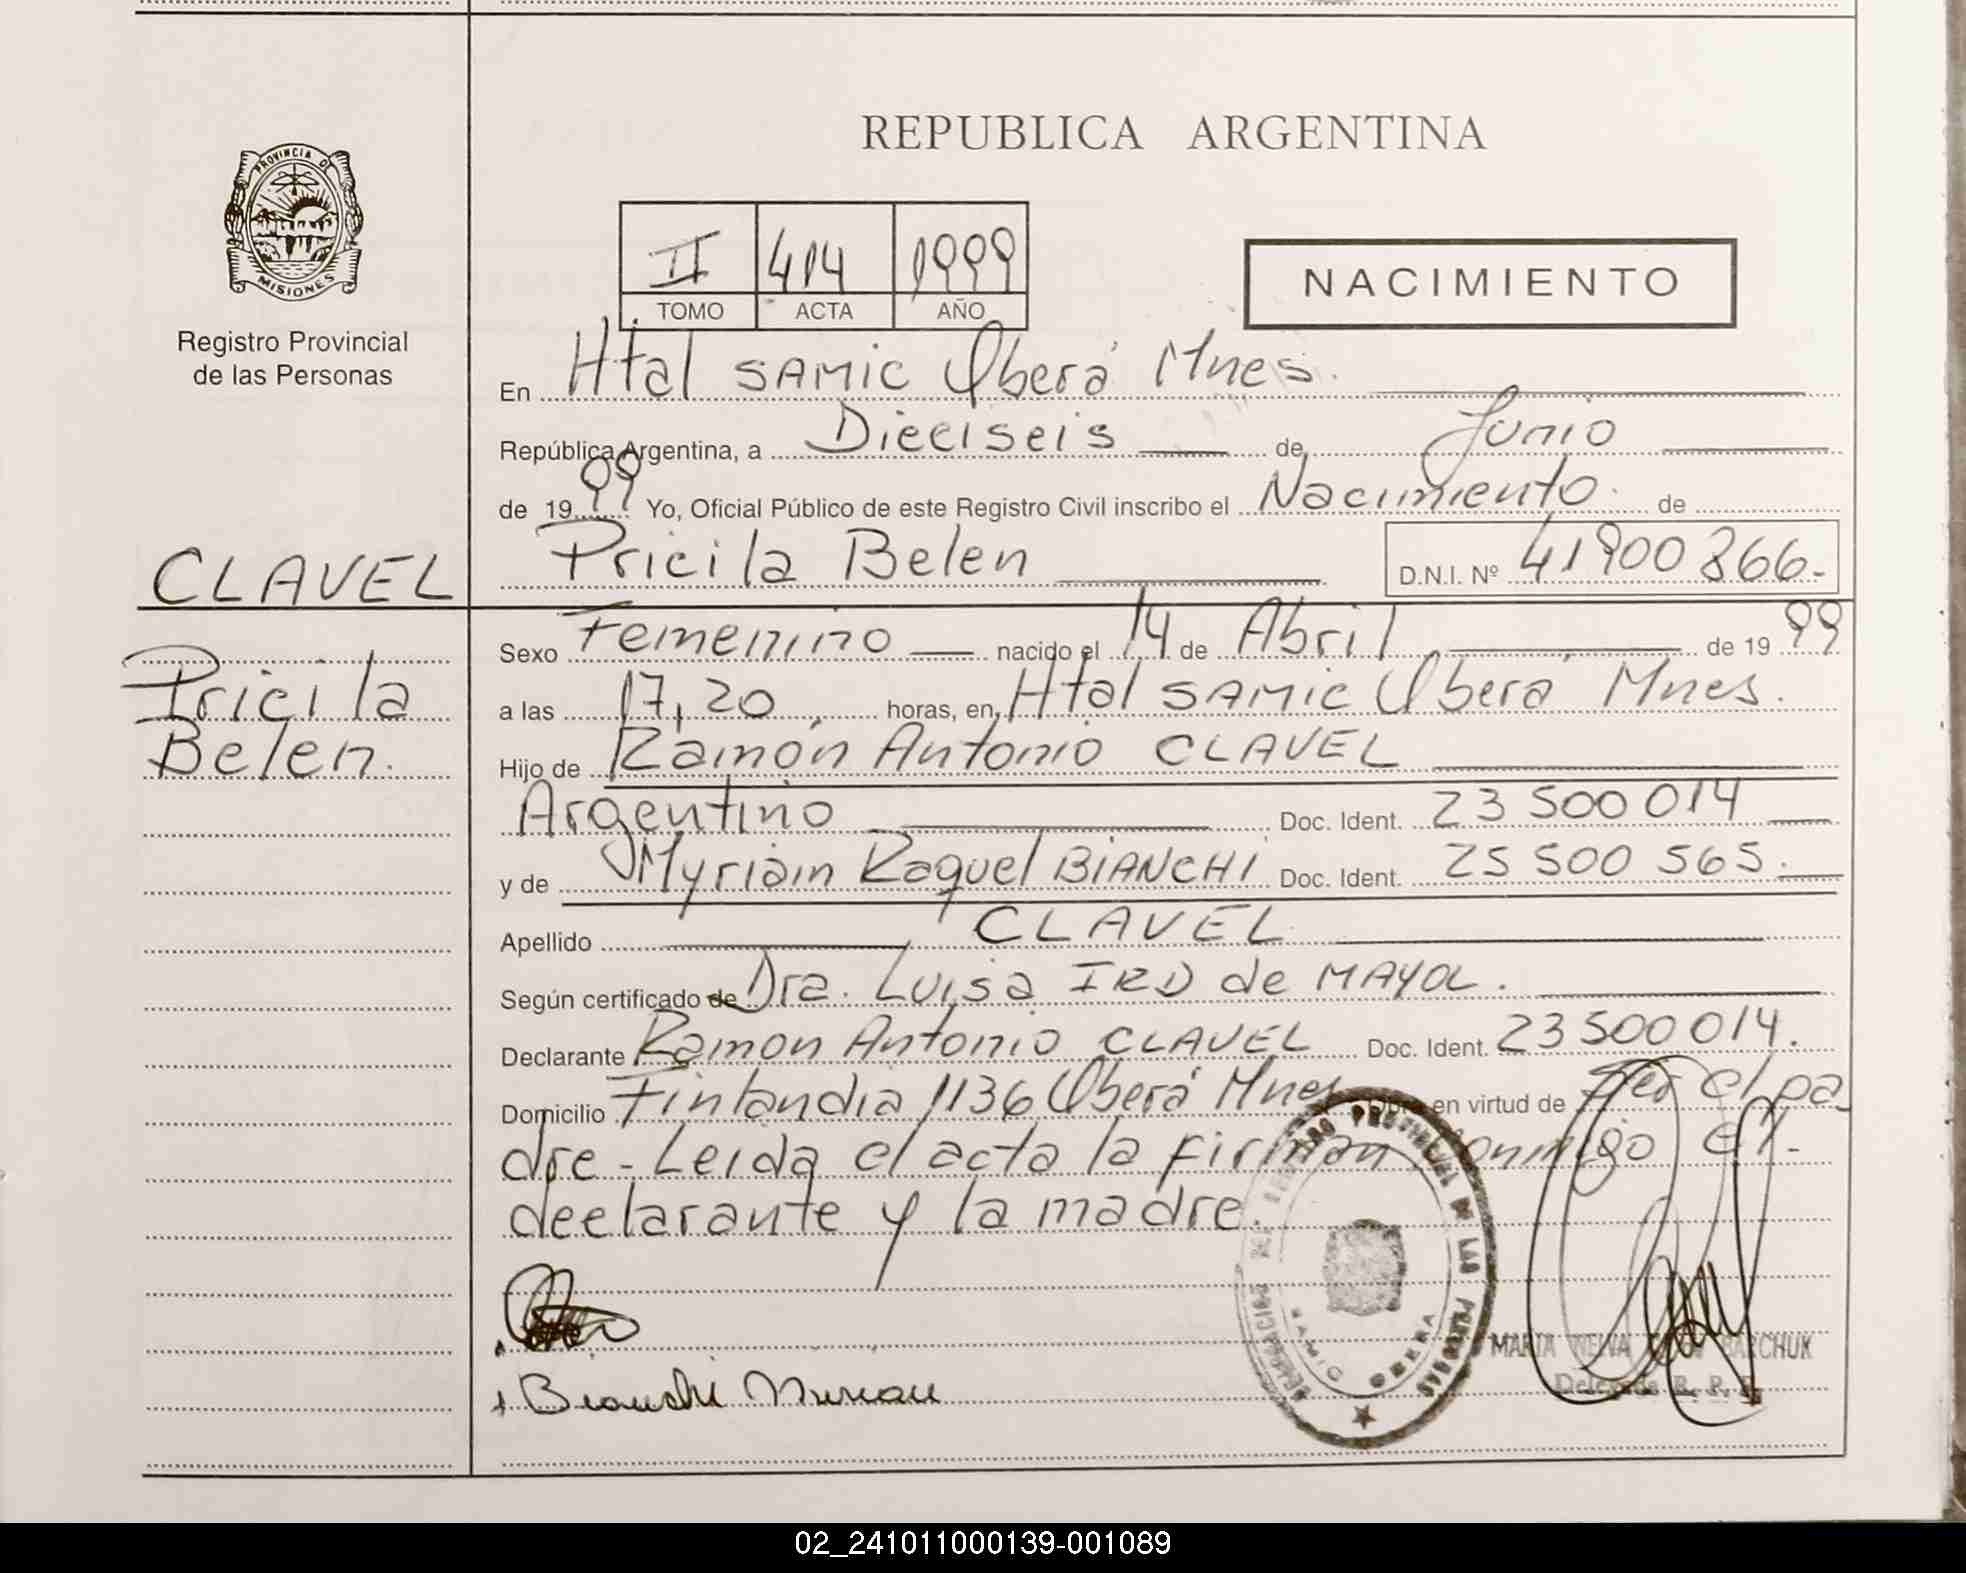 REPUBLICA ARGENTINA
PROVINCIA DE
MISIONES
Registro Provincial
de las Personas
II 414 1999
TOMO ACTA AÑO
NACIMIENTO
En Htal SAMIC Oberá Mnes.
República Argentina, a Dieciseis de Junio
de 1999 Yo, Oficial Público de este Registro Civil inscribo el Nacimiento de
Pricila Belen D.N.I. Nº 41900866.-
CLAVEL
Pricila
Belen.
Sexo Femenino nacido el 14 de Abril de 1999
a las 17,20 horas, en Htal SAMIC Oberá Mnes.
Hijo de Ramón Antonio CLAVEL
Argentino Doc. Ident. 23 500 014
y de Myriam Raquel BIANCHI Doc. Ident. 25 500 565.
Apellido CLAVEL
Según certificado de Dra. Luisa IRD de MAYOL.
Declarante Ramon Antonio CLAVEL Doc. Ident. 23 500 014.
Domicilio Finlandia 1136 Oberá Mnes Obra en virtud de Ser el pa
dre - Leida el acta la firman conmigo el -
declarante y la madre.
DELEGACION DEL REGISTRO PROVINCIAL DE LAS PERSONAS
SAMIC OBERA
Bianchi Miriam
MARIA BARCHUK
Delegada R. P. P.
02_241011000139-001089